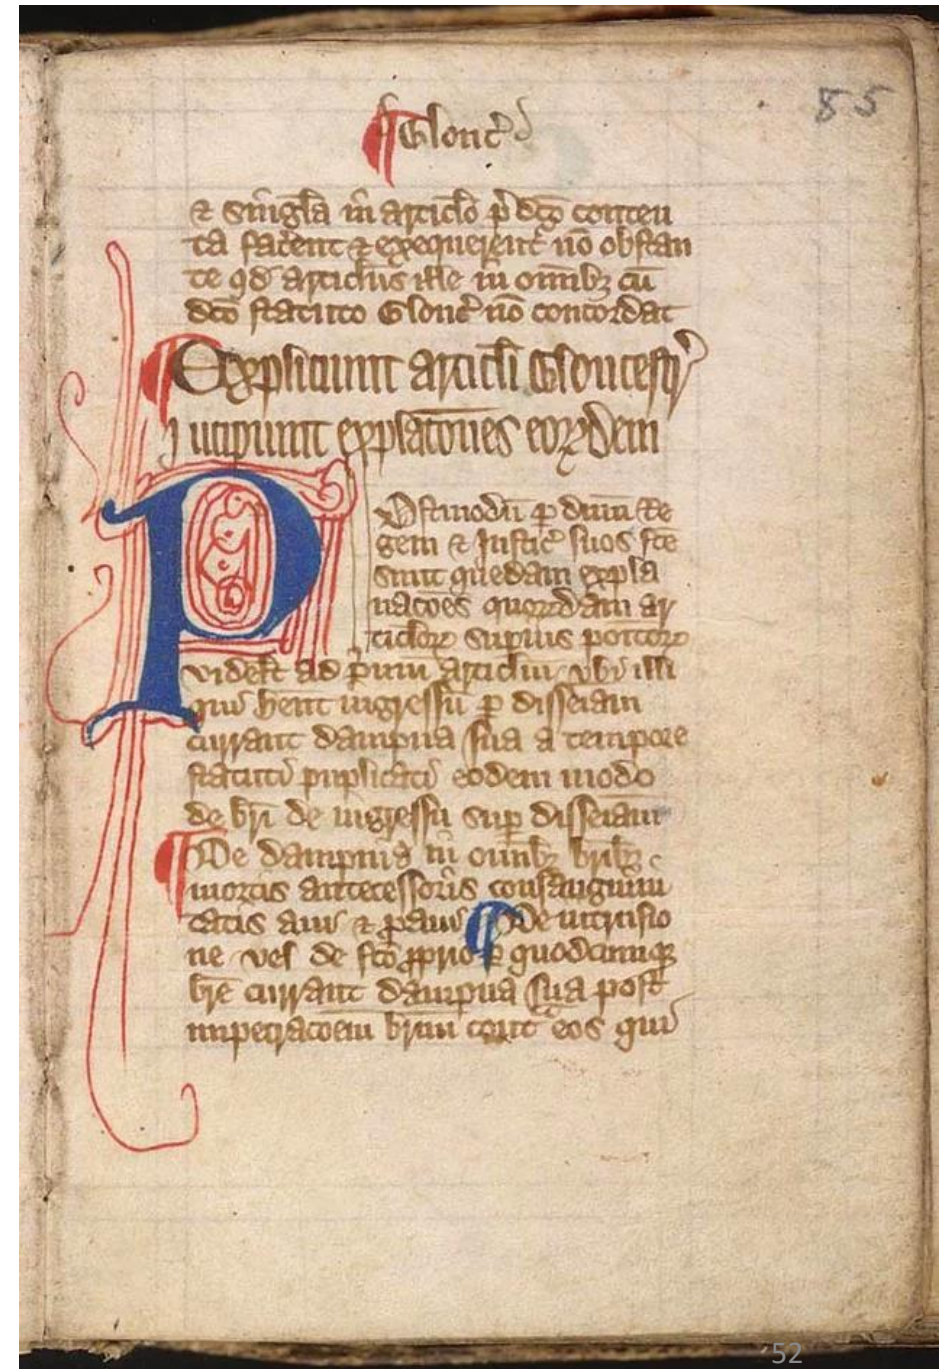 85
¶ Gloucᵉ
& singl̃a in articl̃o p̃dc̃o conten
ta facent & exequerentᵉ nõ obstan
te qd̃ articlus ille in om̃ibꝫ cũ
dc̃o statuto Gloucᵉ nõ concordat
¶ Expliciunt articl̃i Gloucestrᵉ
Incipiunt explac̃ones eoꝝdem
Postmodũ ꝑ dñm Re
gem & Justicᵉ suos fc̃e
sunt quedam expla
nac̃oes quorũdam ar
ticloꝝ supius po῀itoꝝ
videlt̃ ad p̃mum articlm̃ vbi illi
qui hent̃ ingressũ ꝑ disseiam̃
currant dampna sua a tempore
statuti puplicati eodem modo
de br̃i de ingressu sup̃ disseiam̃
¶ De dampnis in om̃ibꝫ br̃ibꝫ
mortis antecessoris consanguini
tatis aui & ꝓaui ¶ De intrusio
ne vel de fc̃o ꝓprio ꝑ quodcumqꝫ
br̃e currant dampna sua post
impetrac̃oem br̃ium cont̃ eos qui
52